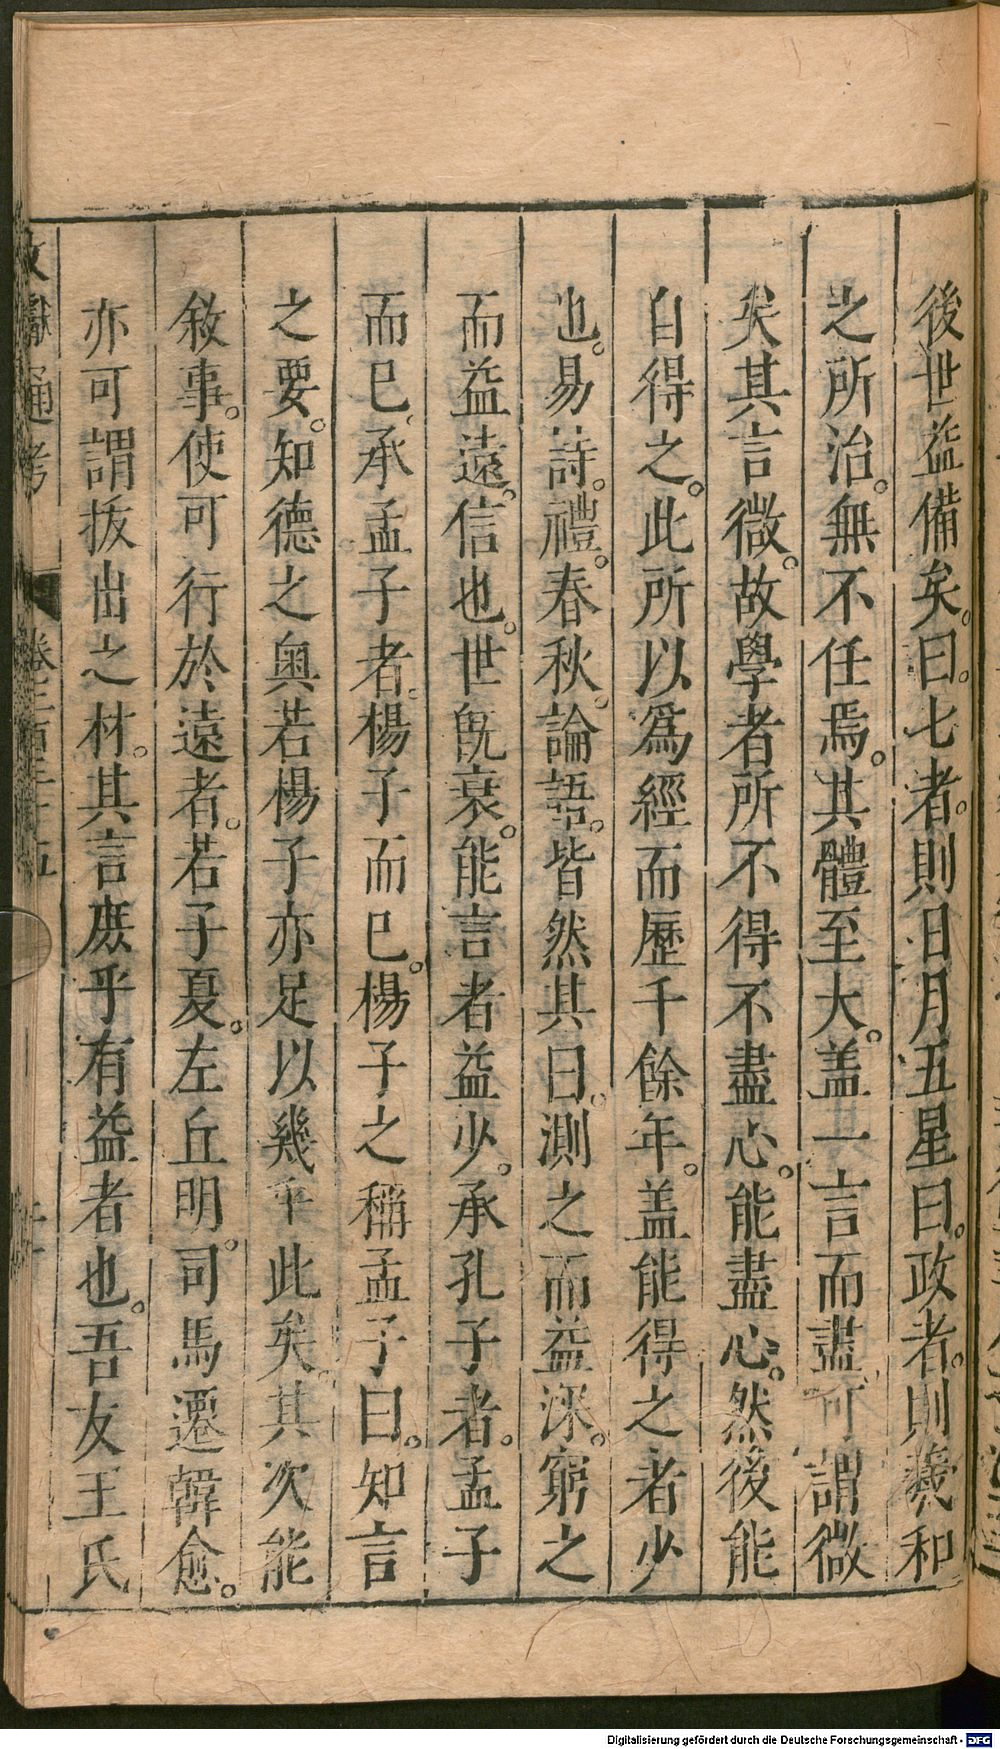 後世益備矣。曰。七者。則日月五星曰。政者。則羲和
之所治。無不任焉。其體至大。盖一言而盡可謂微
矣其言微。故學者所不得不盡心。能盡心。然後能
自得之。此所以爲經而歷千餘年。盖能得之者少
也。易。詩。禮。春秋。論語。皆然其曰。測之而益深。窮之
而益遠。信也。世旣衰。能言者益少。承孔子者。孟子
而已。承孟子者。楊子而已。楊子之稱孟子曰。知言
之要。知德之奥若楊子亦足以幾乎此矣。其次能
敘事。使可行於遠者。若子夏。左丘明。司馬遷韓愈。
亦可謂拔出之材。其言庶乎有益者也。吾友王氏
獻通考 卷二百三十五
Digitalisierung gefördert durch die Deutsche Forschungsgemeinschaft - DFG